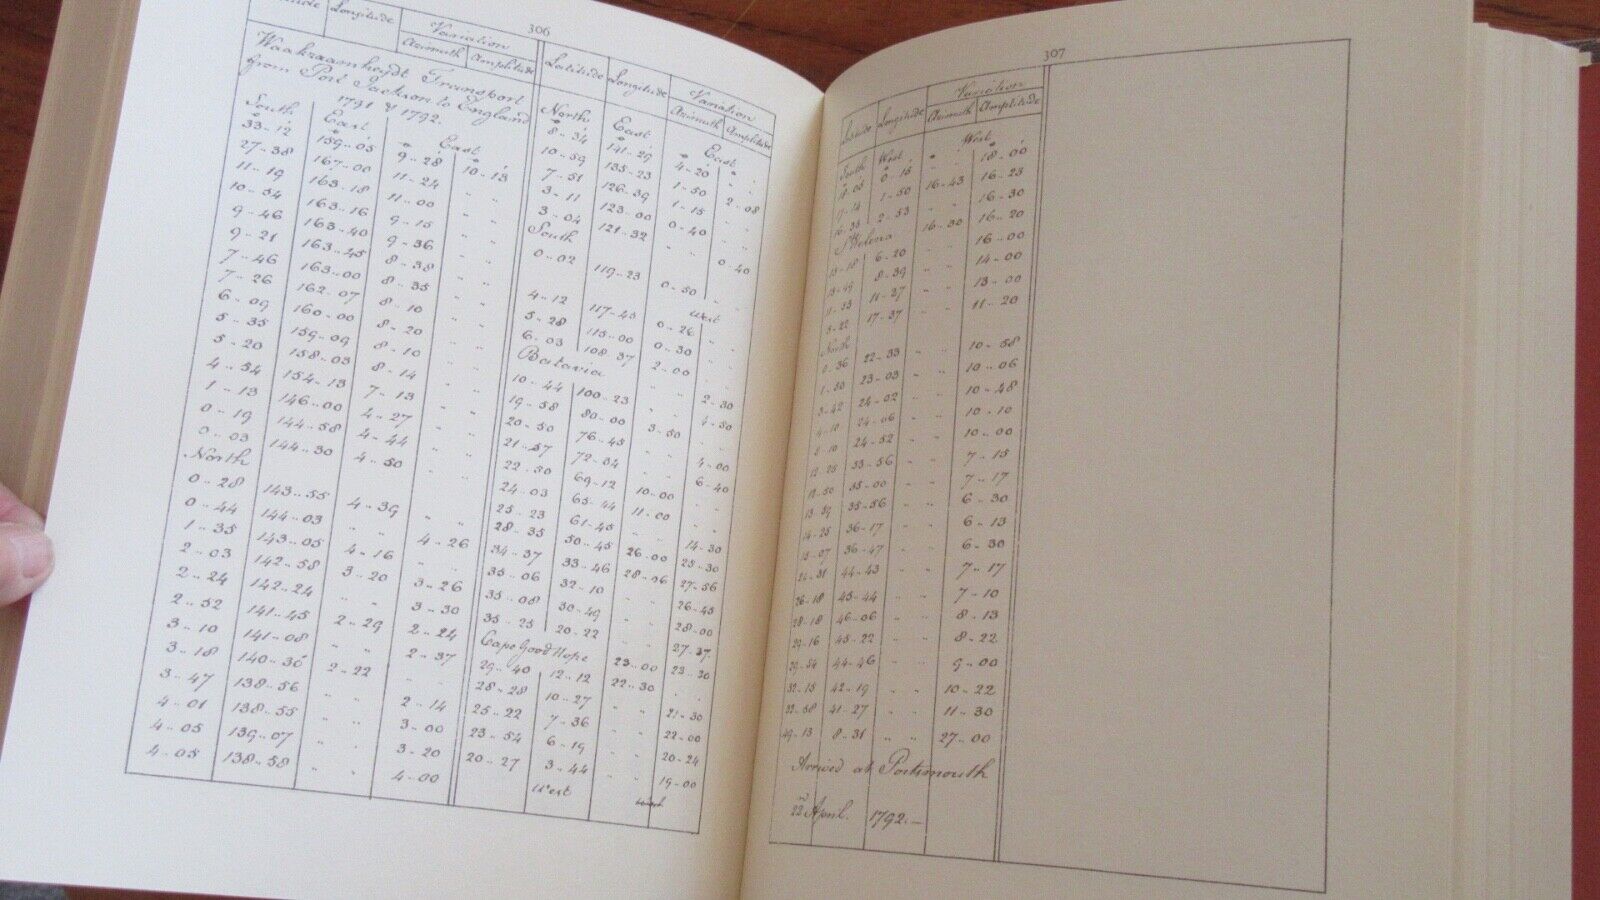 306
Latitude Longitude Variation
Azimuth Amplitude
Waakzaamheydt Transport
from Port Jackson to England
1791 & 1792.
South East East
33..12 159..05 9..28 10..13
27..38 167..00 11..24 .. ..
11..19 163..18 11..00 .. ..
10..34 163..16 9..15 .. ..
9..46 163..40 9..36 .. ..
9..21 163..45 8..38 .. ..
7..46 163..00 8..35 .. ..
7..26 162..07 8..10 .. ..
6..09 160..00 8..20 .. ..
5..35 159..09 8..10 .. ..
5..20 158..03 8..14 .. ..
4..54 154..13 7..13 .. ..
1..13 146..00 4..27 .. ..
0..19 144..58 4..44 .. ..
0..03 144..30 4..50 .. ..
North
0..28 143..55 4..39 .. ..
0..44 144..03 .. .. 4..26
1..35 143..05 4..16 .. ..
2..03 142..58 3..20 3..26
2..24 142..24 .. .. 3..30
2..52 141..45 2..29 2..24
3..10 141..08 .. .. 2..37
3..18 140..30 2..22 .. ..
3..47 138..56 .. .. 2..14
4..01 138..55 .. .. 3..00
4..05 139..07 .. .. 3..20
4..05 138..58 .. .. 4..00
Latitude Longitude Variation
Azimuth Amplitude
North East East
8..34 141..29 4..20 .. ..
10..59 135..23 1..50 .. ..
7..51 126..39 1..15 2..08
3..11 123..00 0..40 .. ..
3..04 121..32 .. .. 0..40
South
0..02 119..23 0..50 .. ..
West
4..12 117..45 0..26 .. ..
5..28 115..00 0..30 .. ..
6..03 108..37 2..00 .. ..
Batavia
10..44 100..23 .. .. 2..30
19..58 80..00 .. .. 4..50
20..50 76..45 3..50 .. ..
21..57 72..34 .. .. 4..00
22..30 69..12 .. .. 6..40
24..03 65..44 10..00 .. ..
25..23 61..45 11..00 .. ..
28..35 50..45 .. .. 14..30
34..37 33..46 26..00 25..30
35..06 32..10 28..06 27..56
35..08 30..49 .. .. 26..45
35..25 20..22 .. .. 28..00
Cape Good Hope 23..00 27..37
29..40 12..12 22..30 23..30
28..28 10..27 .. .. .. ..
25..22 7..36 .. .. 21..30
23..54 6..19 .. .. 22..00
20..27 3..44 .. .. 20..24
West 19..00
West
307
Longitude Variation
Azimuth Amplitude
South West West
18..05 0..15 .. .. 18..00
17..14 1..50 16..43 16..23
16..35 2..53 .. .. 16..30
St Helena 16..30 16..20
13..18 6..20 .. .. 16..00
13..49 8..39 .. .. 14..00
11..33 11..37 .. .. 13..00
3..22 17..37 .. .. 11..20
North
0..36 22..33 .. .. 10..58
1..30 23..03 .. .. 10..06
3..42 24..02 .. .. 10..48
4..10 24..06 .. .. 10..10
8..10 24..52 .. .. 10..00
12..25 33..56 .. .. 7..15
12..50 35..00 .. .. 7..17
13..59 35..56 .. .. 6..30
14..25 36..17 .. .. 6..13
15..07 36..47 .. .. 6..30
24..31 44..43 .. .. 7..17
26..18 45..44 .. .. 7..10
28..18 46..06 .. .. 8..13
29..16 45..22 .. .. 8..22
29..54 44..46 .. .. 9..00
32..15 42..19 .. .. 10..22
32..58 41..27 .. .. 11..30
49..13 8..31 .. .. 27..00
Arrived at Portsmouth
22nd April. 1792.—